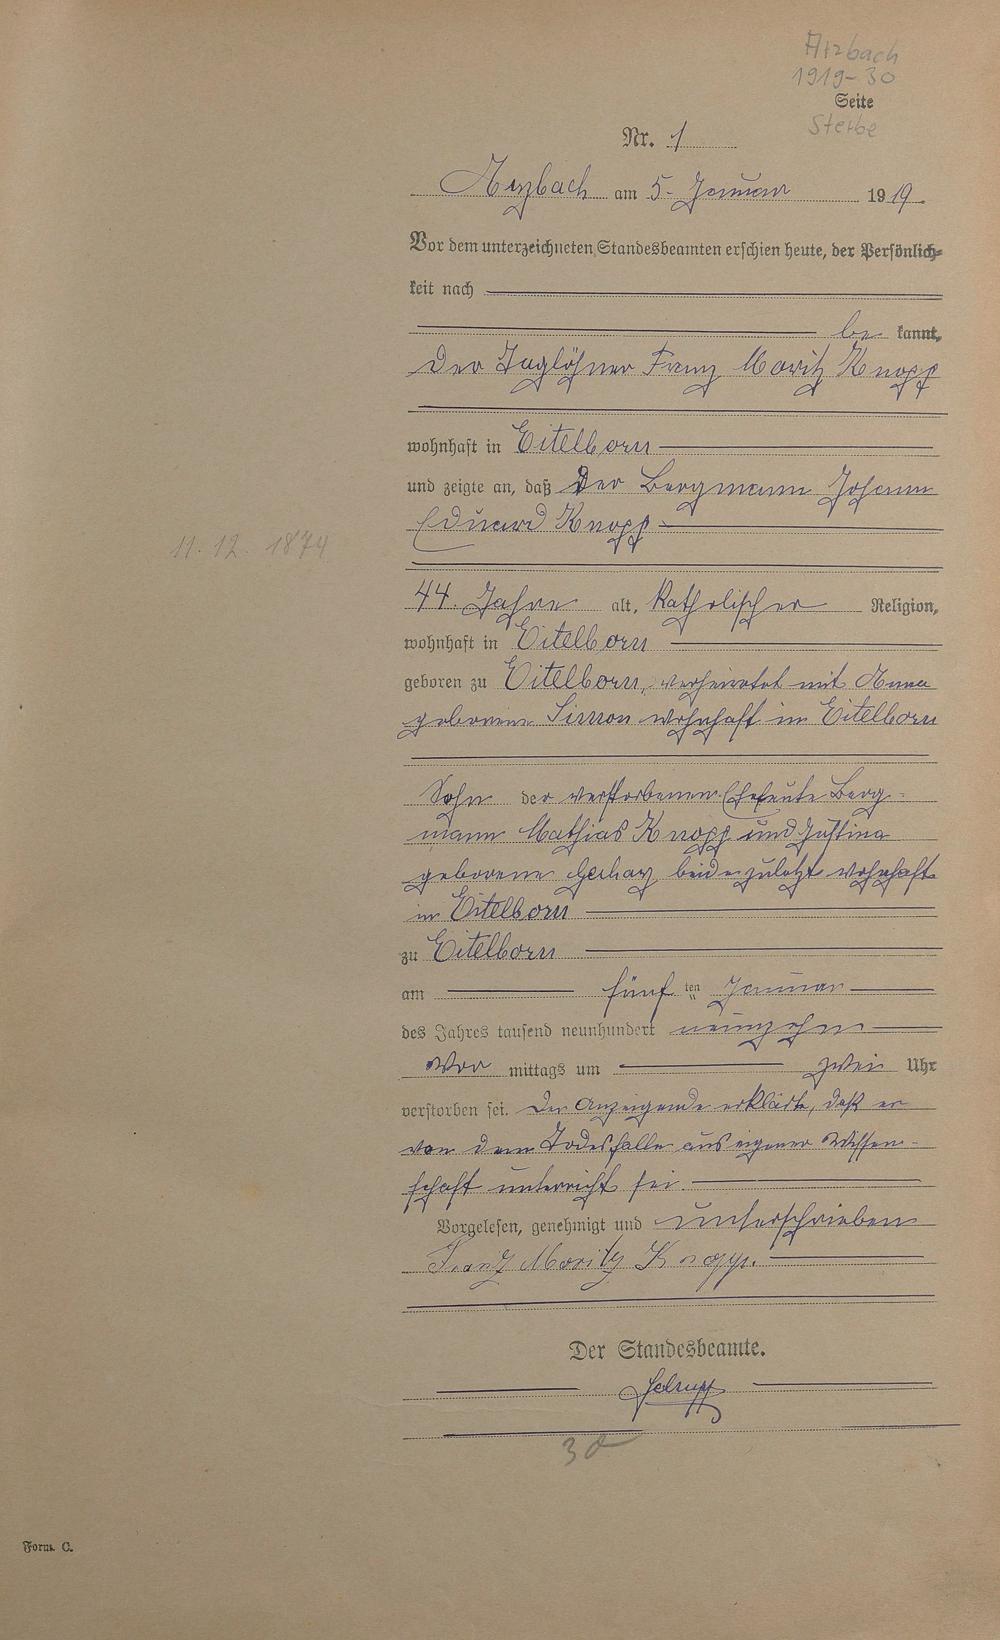 Arzbach
1919-30
Seite
Sterbe
Nr. 1
Arzbach am 5. Januar 1919.
Vor dem unterzeichneten Standesbeamten erschien heute, der Persönlich-
keit nach
be kannt,
Der Taglöhner Franz Moritz Knopp
wohnhaft in Eitelborn
und zeigte an, daß Der Bergmann Johann
Eduard Knopp
11. 12. 1874
44. Jahre alt, Katholischer Religion,
wohnhaft in Eitelborn
geboren zu Eitelborn, verheiratet mit Anna
geborenen Simon wohnhaft in Eitelborn
Sohn der verstorbenen Eheleute Berg-
mann Mathias Knopp und Justina
geborene beide zuletzt wohnhaft
in Eitelborn
zu Eitelborn
am fünf ten Januar
des Jahres tausend neunhundert neunzehn
Vor mittags um zwei Uhr
verstorben sei. Der Anzeigende erklärte, daß er
von dem Todesfalle aus eigener Wissen-
schaft unterricht sei.
Vorgelesen, genehmigt und unterschrieben
Franz Moritz Knopp.
Der Standesbeamte.
30
Form. C.